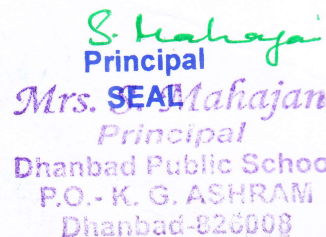 S. Mahajan
Principal
SEAL
Mrs. Mahajan
Principal
Dhanbad Public Schoo
P.O.- K. G. ASHRAM
Dhanbad-826008